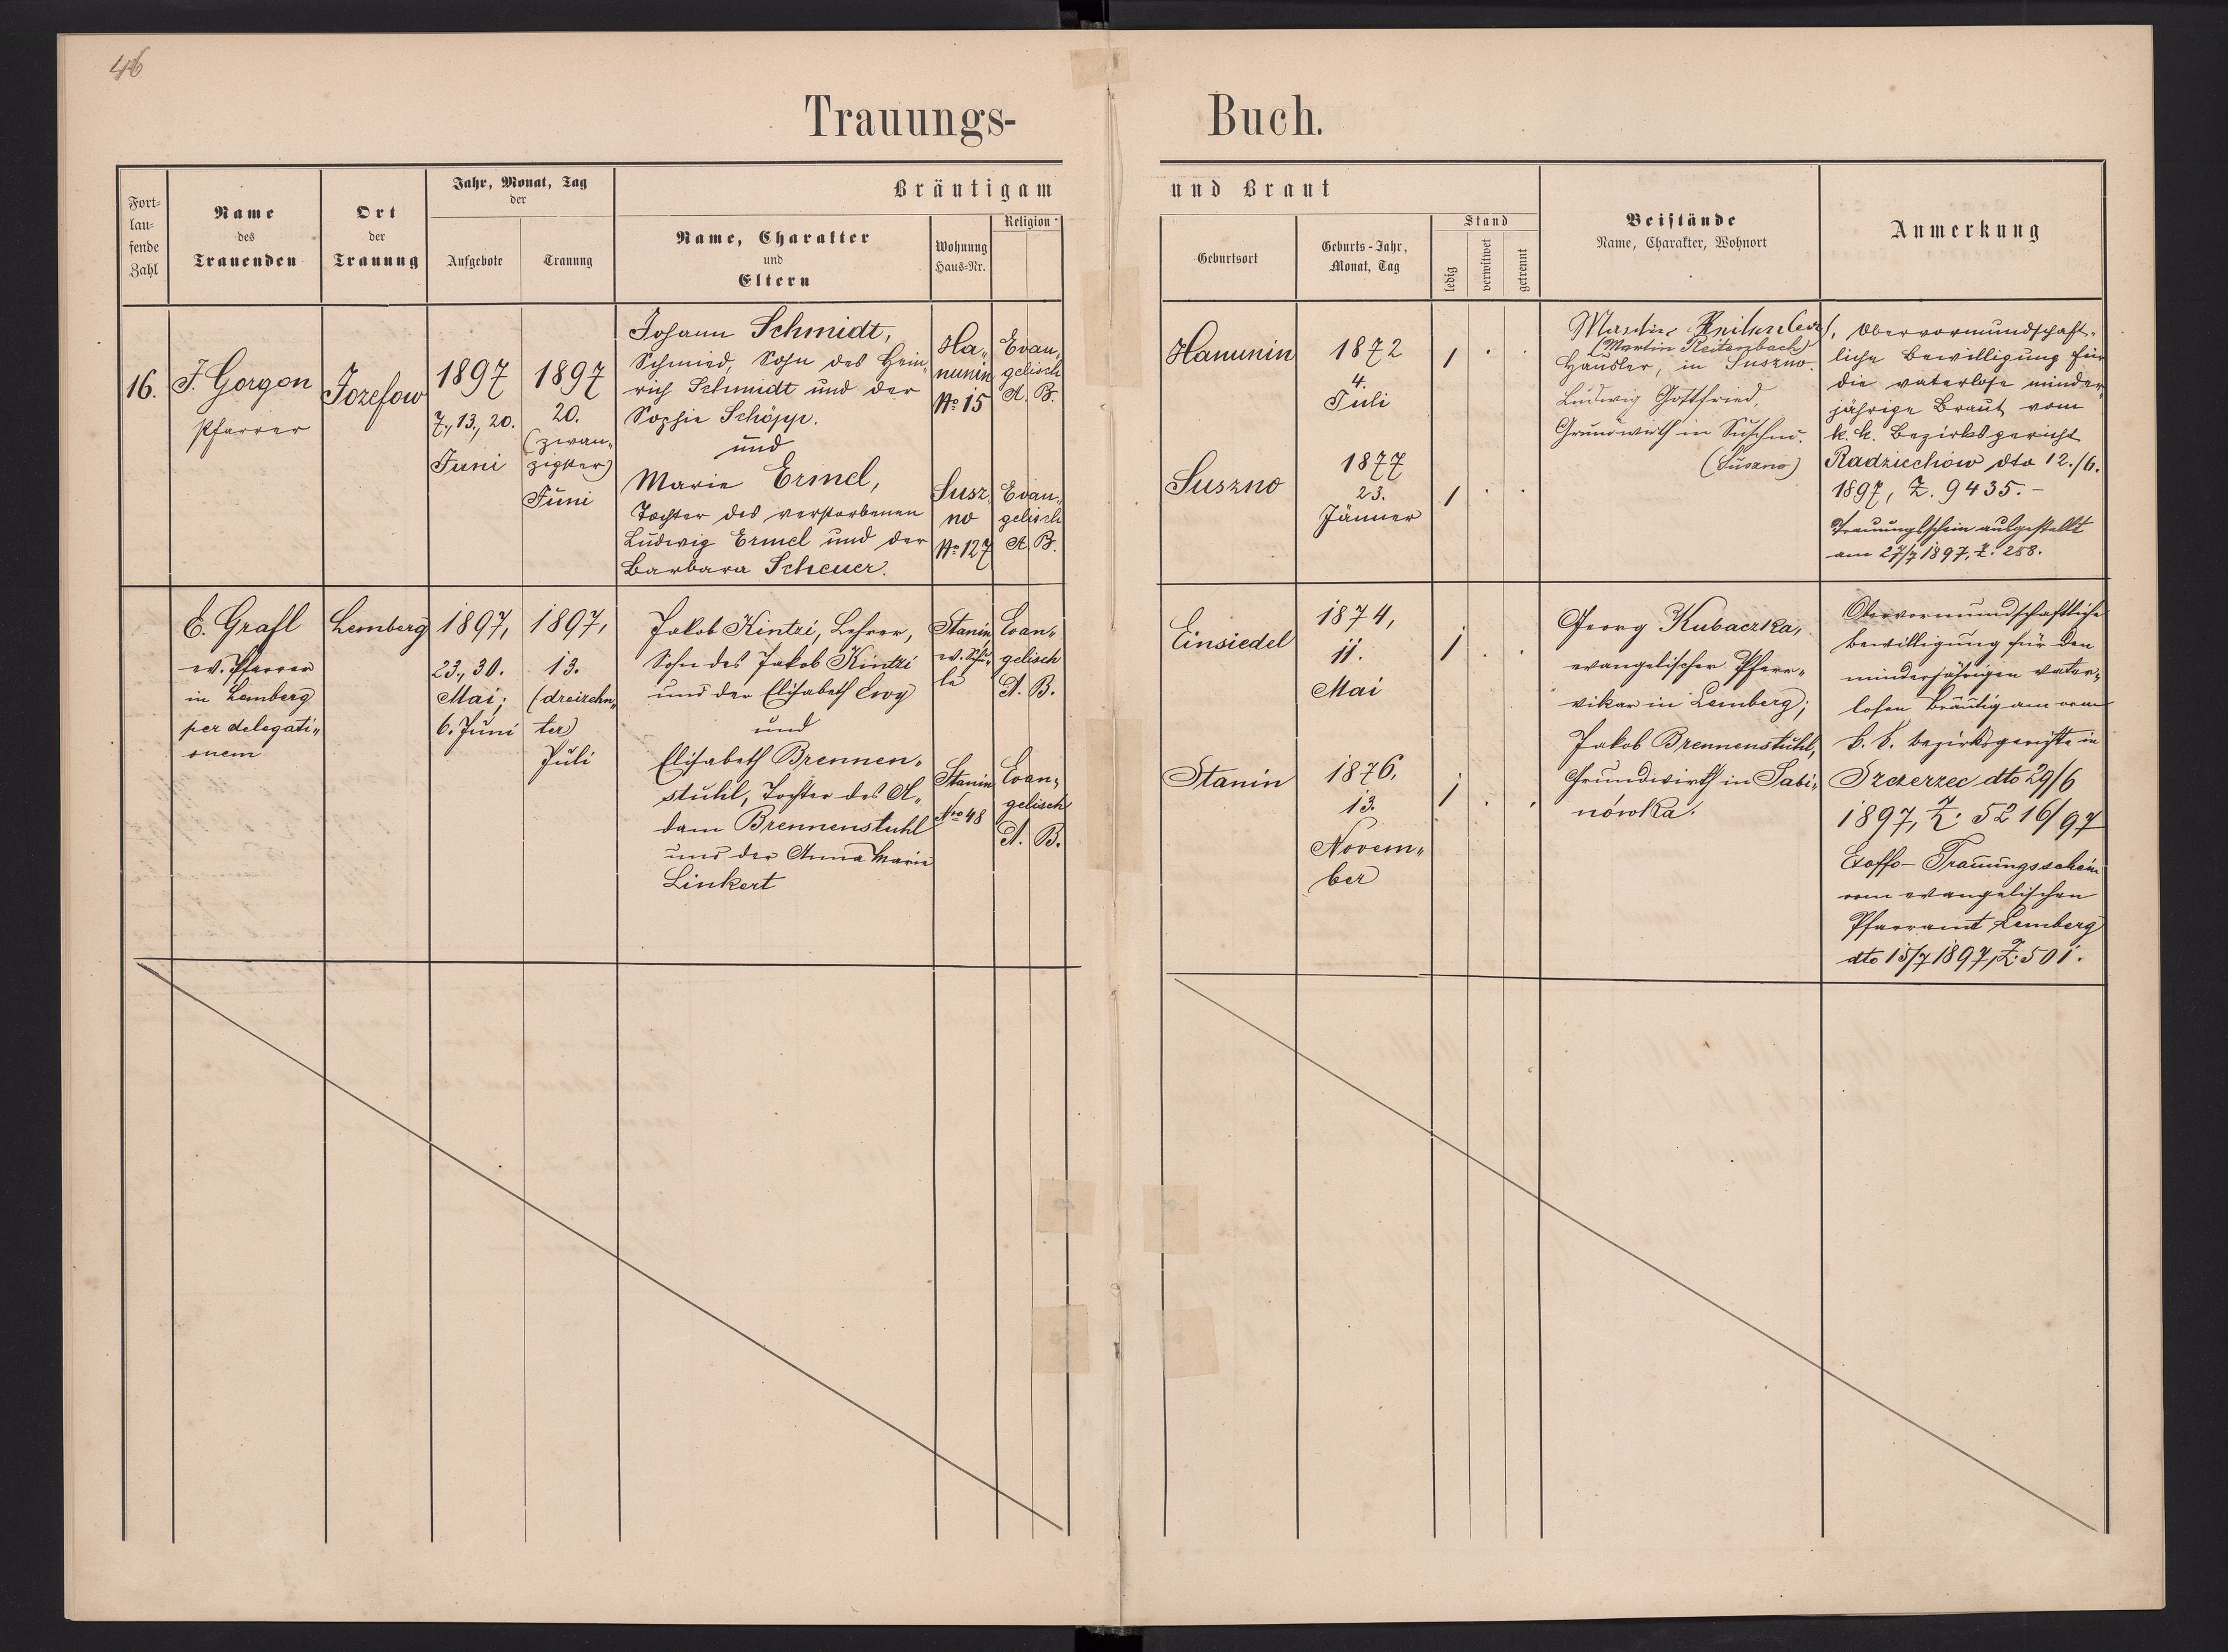 46
Trauungs-Buch.
Fort-
lau-
fende
Zahl
Name
des
Trauenden
Ort
der
Trauung
Jahr, Monat, Tag
der
Aufgebote
Trauung
Bräutigam und Braut
Name, Charakter
und
Eltern
Wohnung
Haus-Nr.
Religion
Geburtsort
Geburts-Jahr,
Monat, Tag
Stand
ledig
verwitwet
getrennt
Beistände
Name, Charakter, Wohnort
Anmerkung
16.
F. Gorgon
Pfarrer
Jozefow
1897
7., 13., 20.
Juni
1897
20.
(zwan„
zigster)
Juni
Johann Schmidt,
Schmied, Sohn des Hein„
rich Schmidt und der
Sophie Schöpp.
und
Marie Ermel,
Tochter des verstorbenen
Ludwig Ermel und der
Barbara Scheuer.
Ha„
nunin
No 15
Evan„
gelisch
A. B.
Susz„
no
No 127
Evan„
gelisch
A. B.
Hanunin
1872
4.
Juli
1
Suszno
1877
23.
Jänner
1
Martin
(Martin Reitenbach)
Häusler, in Suszno.
Ludwig Gottfried,
Grundwirth in Suschno.
(Suszno)
Obervormundschaft-
liche Bewilligung für
die vaterlose minder„
jährige Braut vom
k. k. Bezirksgericht
Radziechów dto 12./6.
1897, Z. 9435.-
Trauungsschein ausgestellt
am 27/7 1897, Z. 258.
E. Grafl
ev. Pfarrer
in Lemberg
per delegati„
onem
Lemberg
1897,
23., 30.
Mai;
6. Juni
1897,
13.
(dreizehn„
ter)
Juli
Jakob Kintzi, Lehrer,
Sohn des Jakob Kintzi
und der Elisabeth Croy
und
Elisabeth Brennen„
stuhl, Tochter des A„
dam Brennenstuhl
und der Anna Marie
Linkert
Stanin
ev. Schu„
le
Evan„
gelisch
A. B.
Stanin
Nro 48
Evan„
gelisch
A. B.
Einsiedel
1874,
11.
Mai
1
Stanin
1876,
13.
Novem„
ber
1
Georg Kubaczka,
evangelischer Pfarr„
vikar in Lemberg;
Jakob Brennenstuhl,
Grundwirth in Sabi„
nówka.
Obervormundschaftliche
Bewilligung für den
minderjährigen vater„
losen Bräutigam vom
k. k. Bezirksgerichte in
Szczerzec dto 29/6
1897, Z. 5216/97
Exoffo-Trauungsschein
vom evangelischen
Pfarramt Lemberg
dto 15/7 1897, Z. 501.